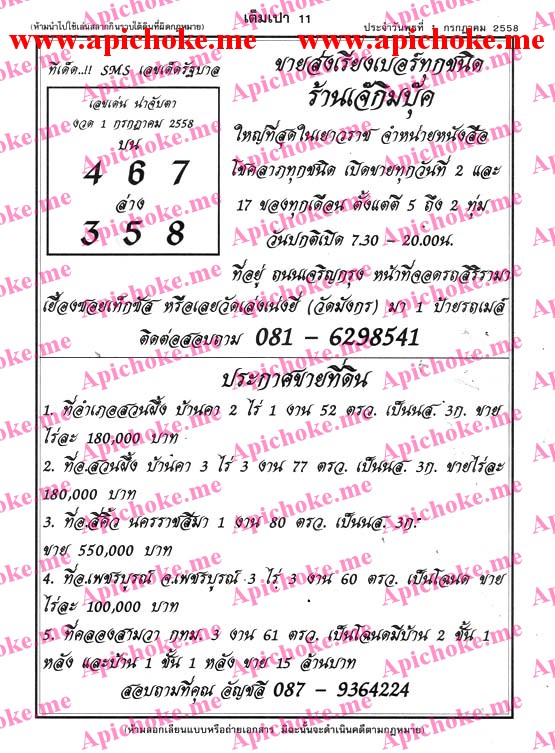 เต็มเปา 11
(ห้ามนำไปใช้เล่นสลากกินรวบใต้ดินที่ผิดกฎหมาย)
ประจำวันพุธที่ 1 กรกฎาคม 2558
www.Apichoke.me www.Apichoke.me
ทีเด็ด..!! SMS เลขเด็ดรัฐบาล
เลขเด่น น่าจับตา
งวด 1 กรกฎาคม 2558
บน
4 6 7
ล่าง
3 5 8
ขายส่งเรียงเบอร์ทุกชนิด
ร้านเจ๊กิมบุ๊ค
ใหญ่ที่สุดในเยาวราช จำหน่ายหนังสือ
โชคลาภทุกชนิด เปิดขายทุกวันที่ 2 และ
17 ของทุกเดือน ตั้งแต่ตี 5 ถึง 2 ทุ่ม
วันปกติเปิด 7.30 - 20.00น.
ที่อยู่ ถนนเจริญกรุง หน้าที่จอดรถสิริรามา
เยื้องซอยเท็กซัส หรือเลยวัดเล่งเน่ยยี่ (วัดมังกร) มา 1 ป้ายรถเมล์
ติดต่อสอบถาม 081 - 6298541
ประกาศขายที่ดิน
1. ที่อำเภอสวนผึ้ง บ้านคา 2 ไร่ 1 งาน 52 ตรว. เป็นนส. 3ก. ขาย
ไร่ละ 180,000 บาท
2. ที่อ.สวนผึ้ง บ้านคา 3 ไร่ 3 งาน 77 ตรว. เป็นนส. 3ก. ขายไร่ละ
180,000 บาท
3. ที่อ.สี่คิ้ว นครราชสีมา 1 งาน 80 ตรว. เป็นนส. 3ก.
ขาย 550,000 บาท
4. ที่อ.เพชรบูรณ์ จ.เพชรบูรณ์ 3 ไร่ 3 งาน 60 ตรว. เป็นโฉนด ขาย
ไร่ละ 100,000 บาท
5. ที่คลองสามวา กทม. 3 งาน 61 ตรว. เป็นโฉนดมีบ้าน 2 ชั้น 1
หลัง และบ้าน 1 ชั้น 1 หลัง ขาย 15 ล้านบาท
สอบถามที่คุณ อัญชลี 087 - 9364224
(ห้ามลอกเลียนแบบหรือถ่ายเอกสาร มิฉะนั้นจะดำเนินคดีตามกฎหมาย)